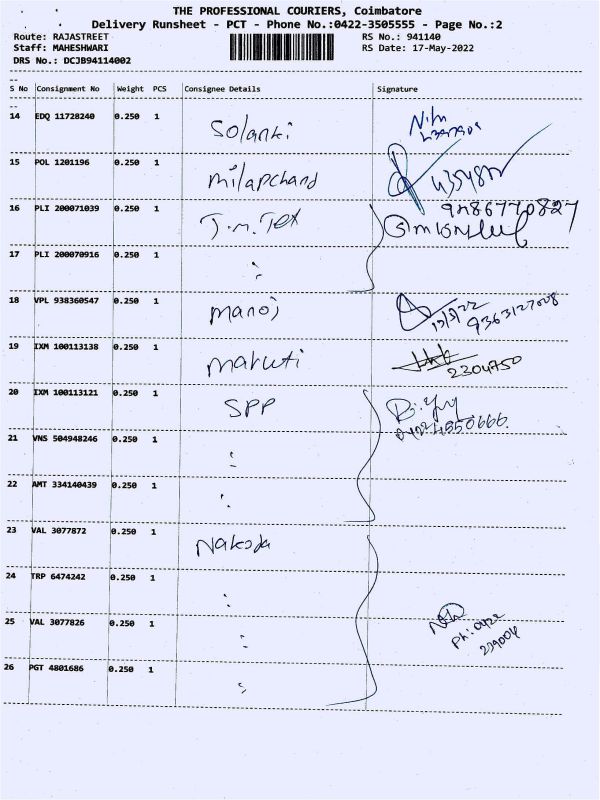 THE PROFESSIONAL COURIERS, Coimbatore
Delivery Runsheet - PCT - Phone No.:0422-3505555 - Page No.:2
Route: RAJASTREET RS No.: 941140
Staff: MAHESHWARI RS Date: 17-May-2022
DRS No.: DCJB94114002
S No Consignment No Weight PCS Consignee Details Signature
14 EDQ 11728240 0.250 1 Solanki
15 POL 1201196 0.250 1 Milapchand
16 PLI 200071039 0.250 1 J.M. Tex
17 PLI 200070916 0.250 1
18 VPL 938360547 0.250 1 Manoj 9363127008
19 IXM 100113138 0.250 1 Maruti 2304750
20 IXM 100113121 0.250 1 SPP 0422 4550666.
21 VNS 504948246 0.250 1
22 AMT 334140439 0.250 1
23 VAL 3077872 0.250 1 Nakoda
24 TRP 6474242 0.250 1
25 VAL 3077826 0.250 1 Ph: 0422
26 PGT 4801686 0.250 1